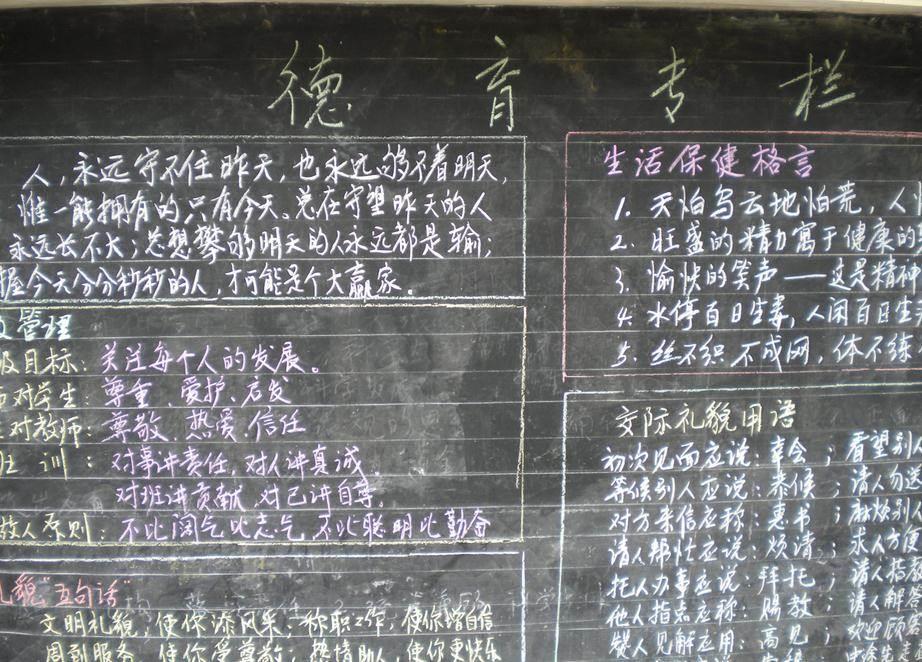 德育专栏
人,永远守不住昨天,也永远够不着明天,
惟一能拥有的只有今天。总在守望昨天的人
永远长不大;总想攀够明天的人永远都是输;
握今天分分秒秒的人,才可能是个大赢家。
管理
级目标:关注每个人的发展。
对学生:尊重 爱护、启发
对教师:尊敬、热爱、信任
班训:对事讲责任,对人讲真诚。
对班讲贡献 对己讲自尊。
做人原则:不比阔气比志气 不比聪明比勤奋
礼貌"五句话"
文明礼貌,使你添风采;称职工作,使你增自信
周到服务,使你受尊敬;热情助人,使你更快乐
生活保健格言
1. 天怕乌云地怕荒,人
2. 旺盛的精力寓于健康的
3. 愉快的笑声——这是精神
4. 水停百日生毒,人闲百日生
5. 丝不织不成网,体不练
交际礼貌用语
初次见面应说:幸会;看望别人
等候别人应说:恭候;请人勿送
对方来信应称:惠书;麻烦别人
请人帮忙应说:烦请;求人方便
托人办事应说:拜托;请人指教
他人指点应称:赐教;请人解答
赞人见解应用:高见;欢迎顾客